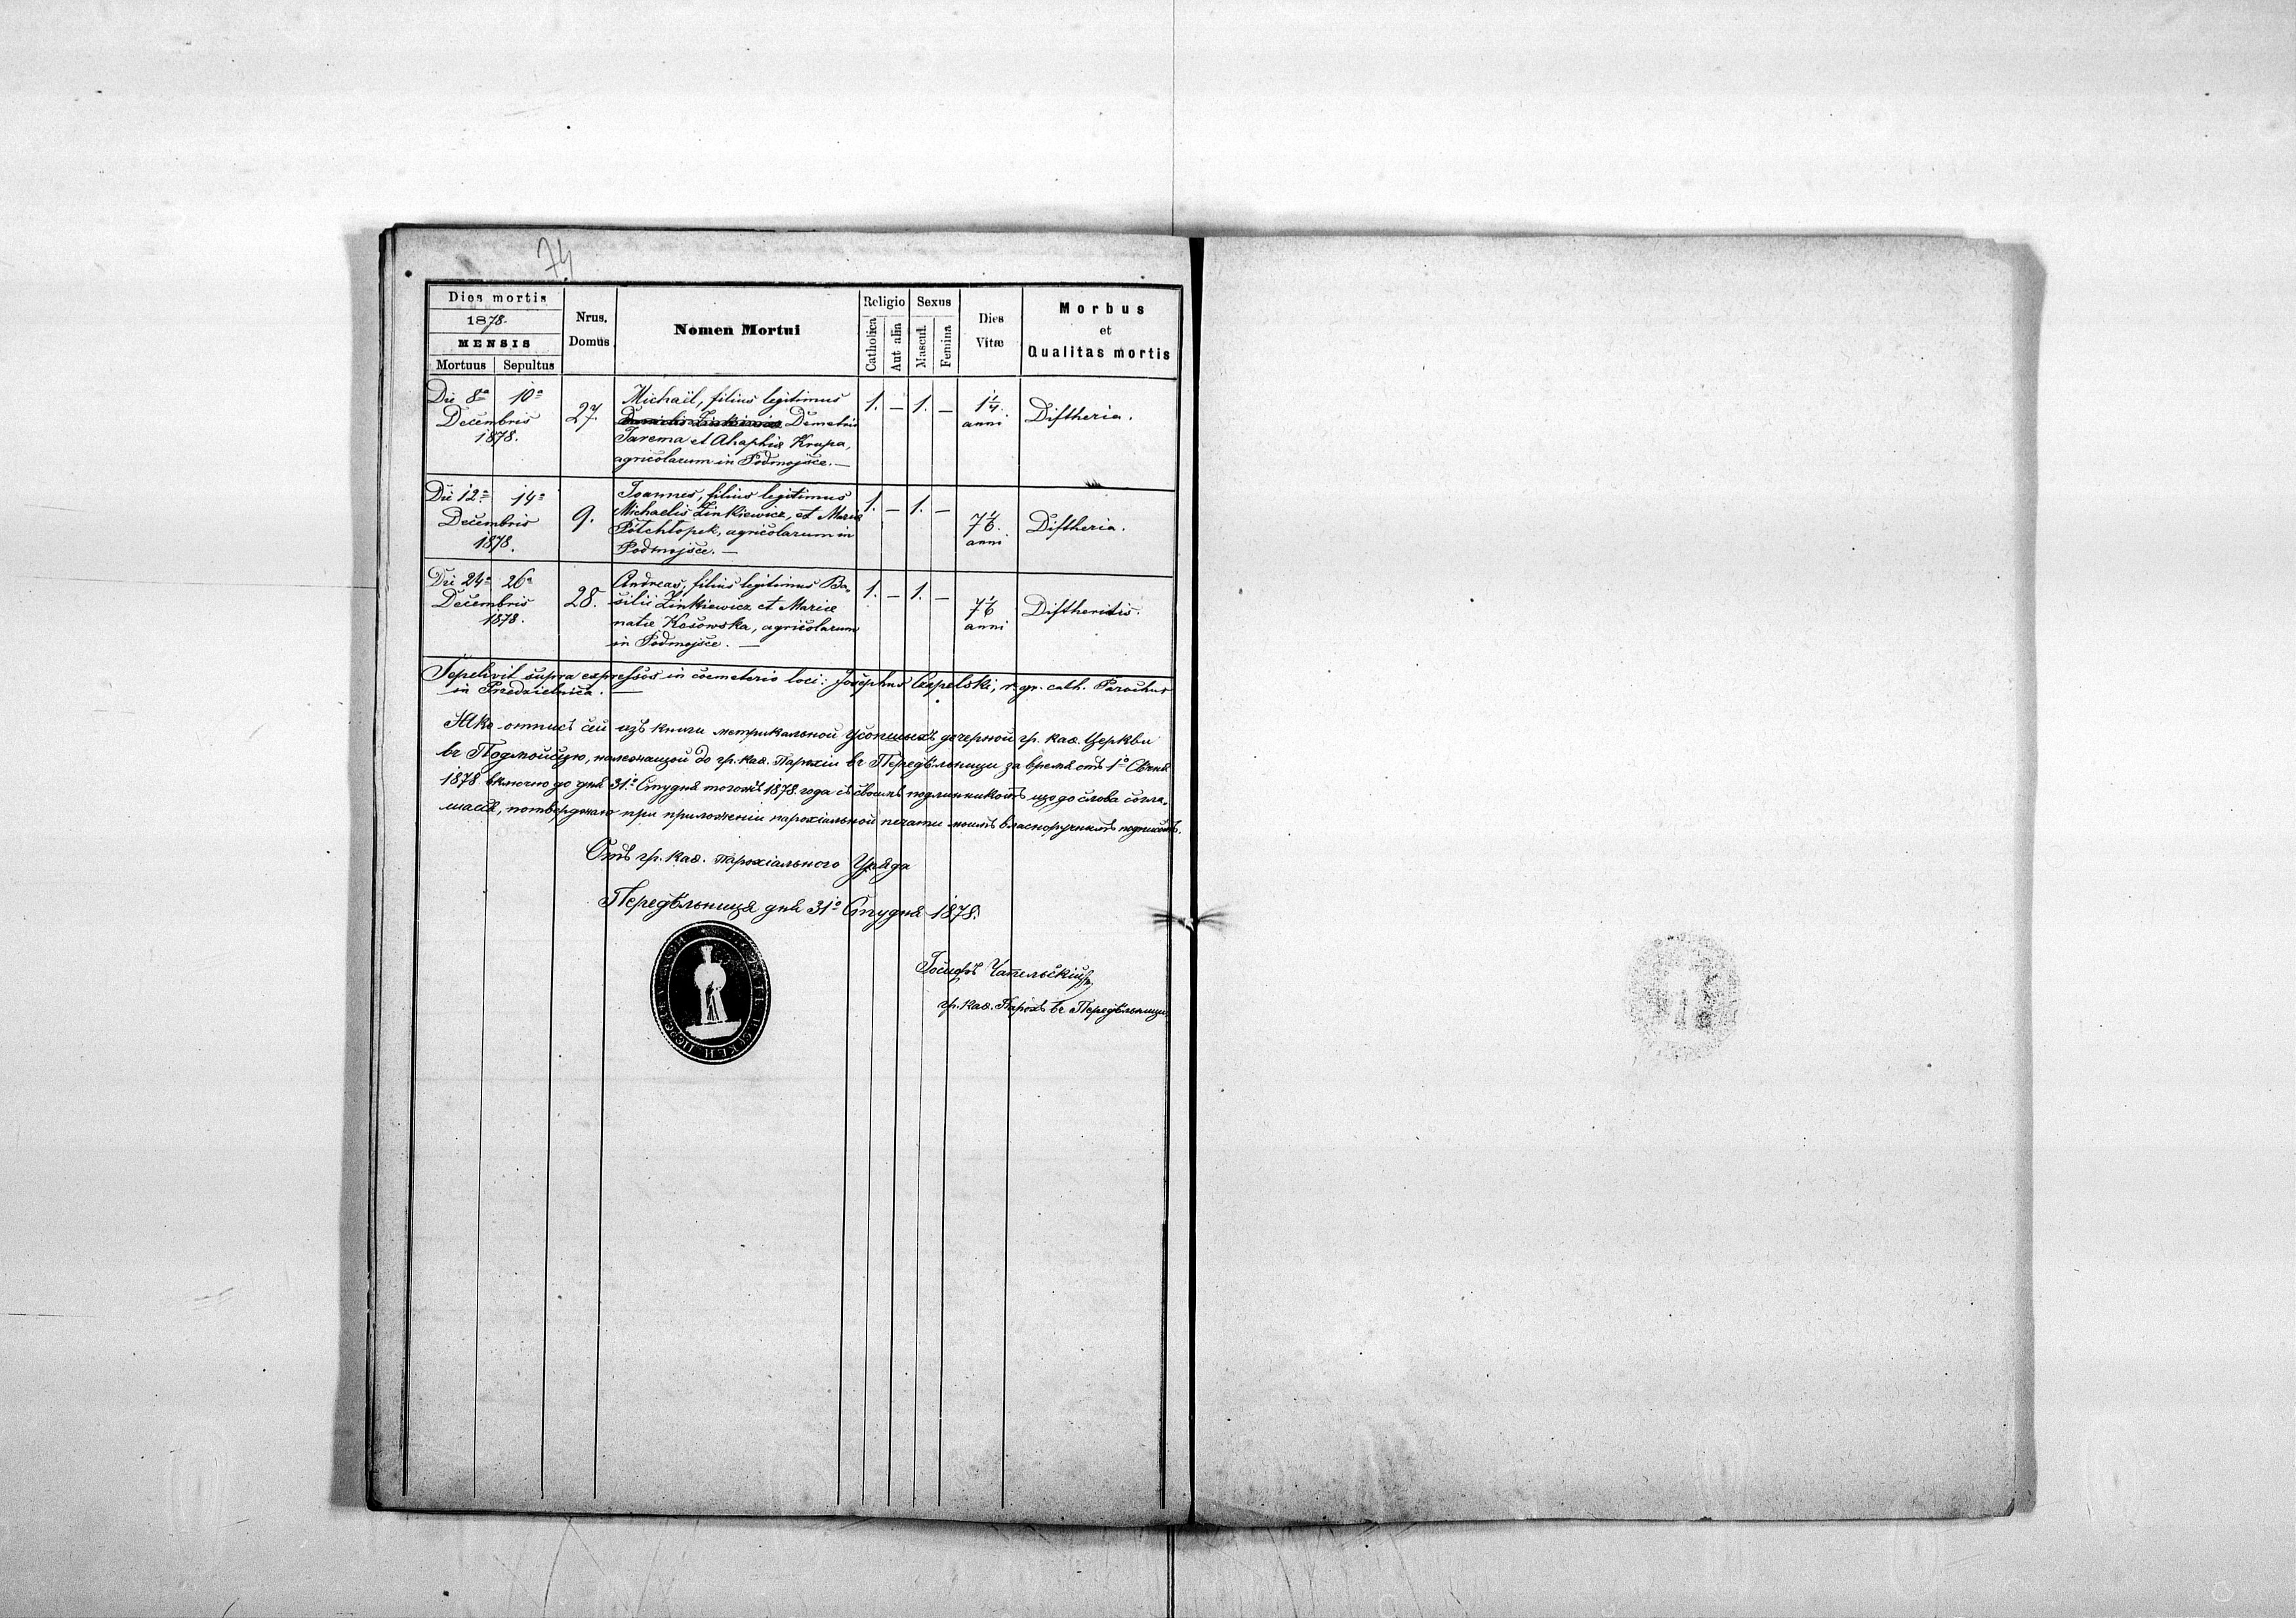 74
Dies mortis
1878.
MENSIS
Mortuus Sepultus
Nrus. Domus
Nomen Mortui
Religio
Catholica
Aut alia
Sexus
Mascul.
Femina
Dies Vitæ
Morbus
et
Qualitas mortis
Die 8ª 10ª
Decembris
1878.
27.
Michaël, filius legitimus
Demetrii
Jarema et Ahaphiæ Krupa,
agricolarum in Podmojsce. —
1. — 1. —
1 1/4.
anni
Diftheria.
Die 12ª 14ª
Decembris
1878.
9.
Joannes, filius legitimus
Michaelis Zinkiewicz, et Mariæ
Półchłopek, agricolarum in
Podmojsce. —
1. — 1. —
anni
Diftheria.
Die 24ª 26ª
Decembris
1878.
28.
Andreas, filius legitimus Ba-
silii Zinkiewicz et Mariæ
natæ Kosowska, agricolarum
in Podmojsce. —
1. — 1. —
anni
Diftheritis.
Sepelivit supra expressos in coemeterio loci: Josephus Czapelski, r. gr. cath. Parochus
in Przedzielnica. —
Яко отписъ сей изъ книги метрикальной Усопшихъ дочерной гр. каѳ. Церкви
въ Подмойсцю, належащой до гр. каѳ. Парохіи въ Передѣльници за время отъ 1º Сѣчня
1878 включно до дня 31º Студня тогожъ 1878. года съ своимъ подлинникомъ що до слова согла-
шаєся, потверджаю при приложеніи парохіальной печати моимъ власноручнымъ подписомъ.
Отъ гр. каѳ. парохіального Уряда
Передѣльница дня 31º Студня 1878.
Іосифъ Чапельскій
гр. каѳ. Парохъ въ Передѣльници.